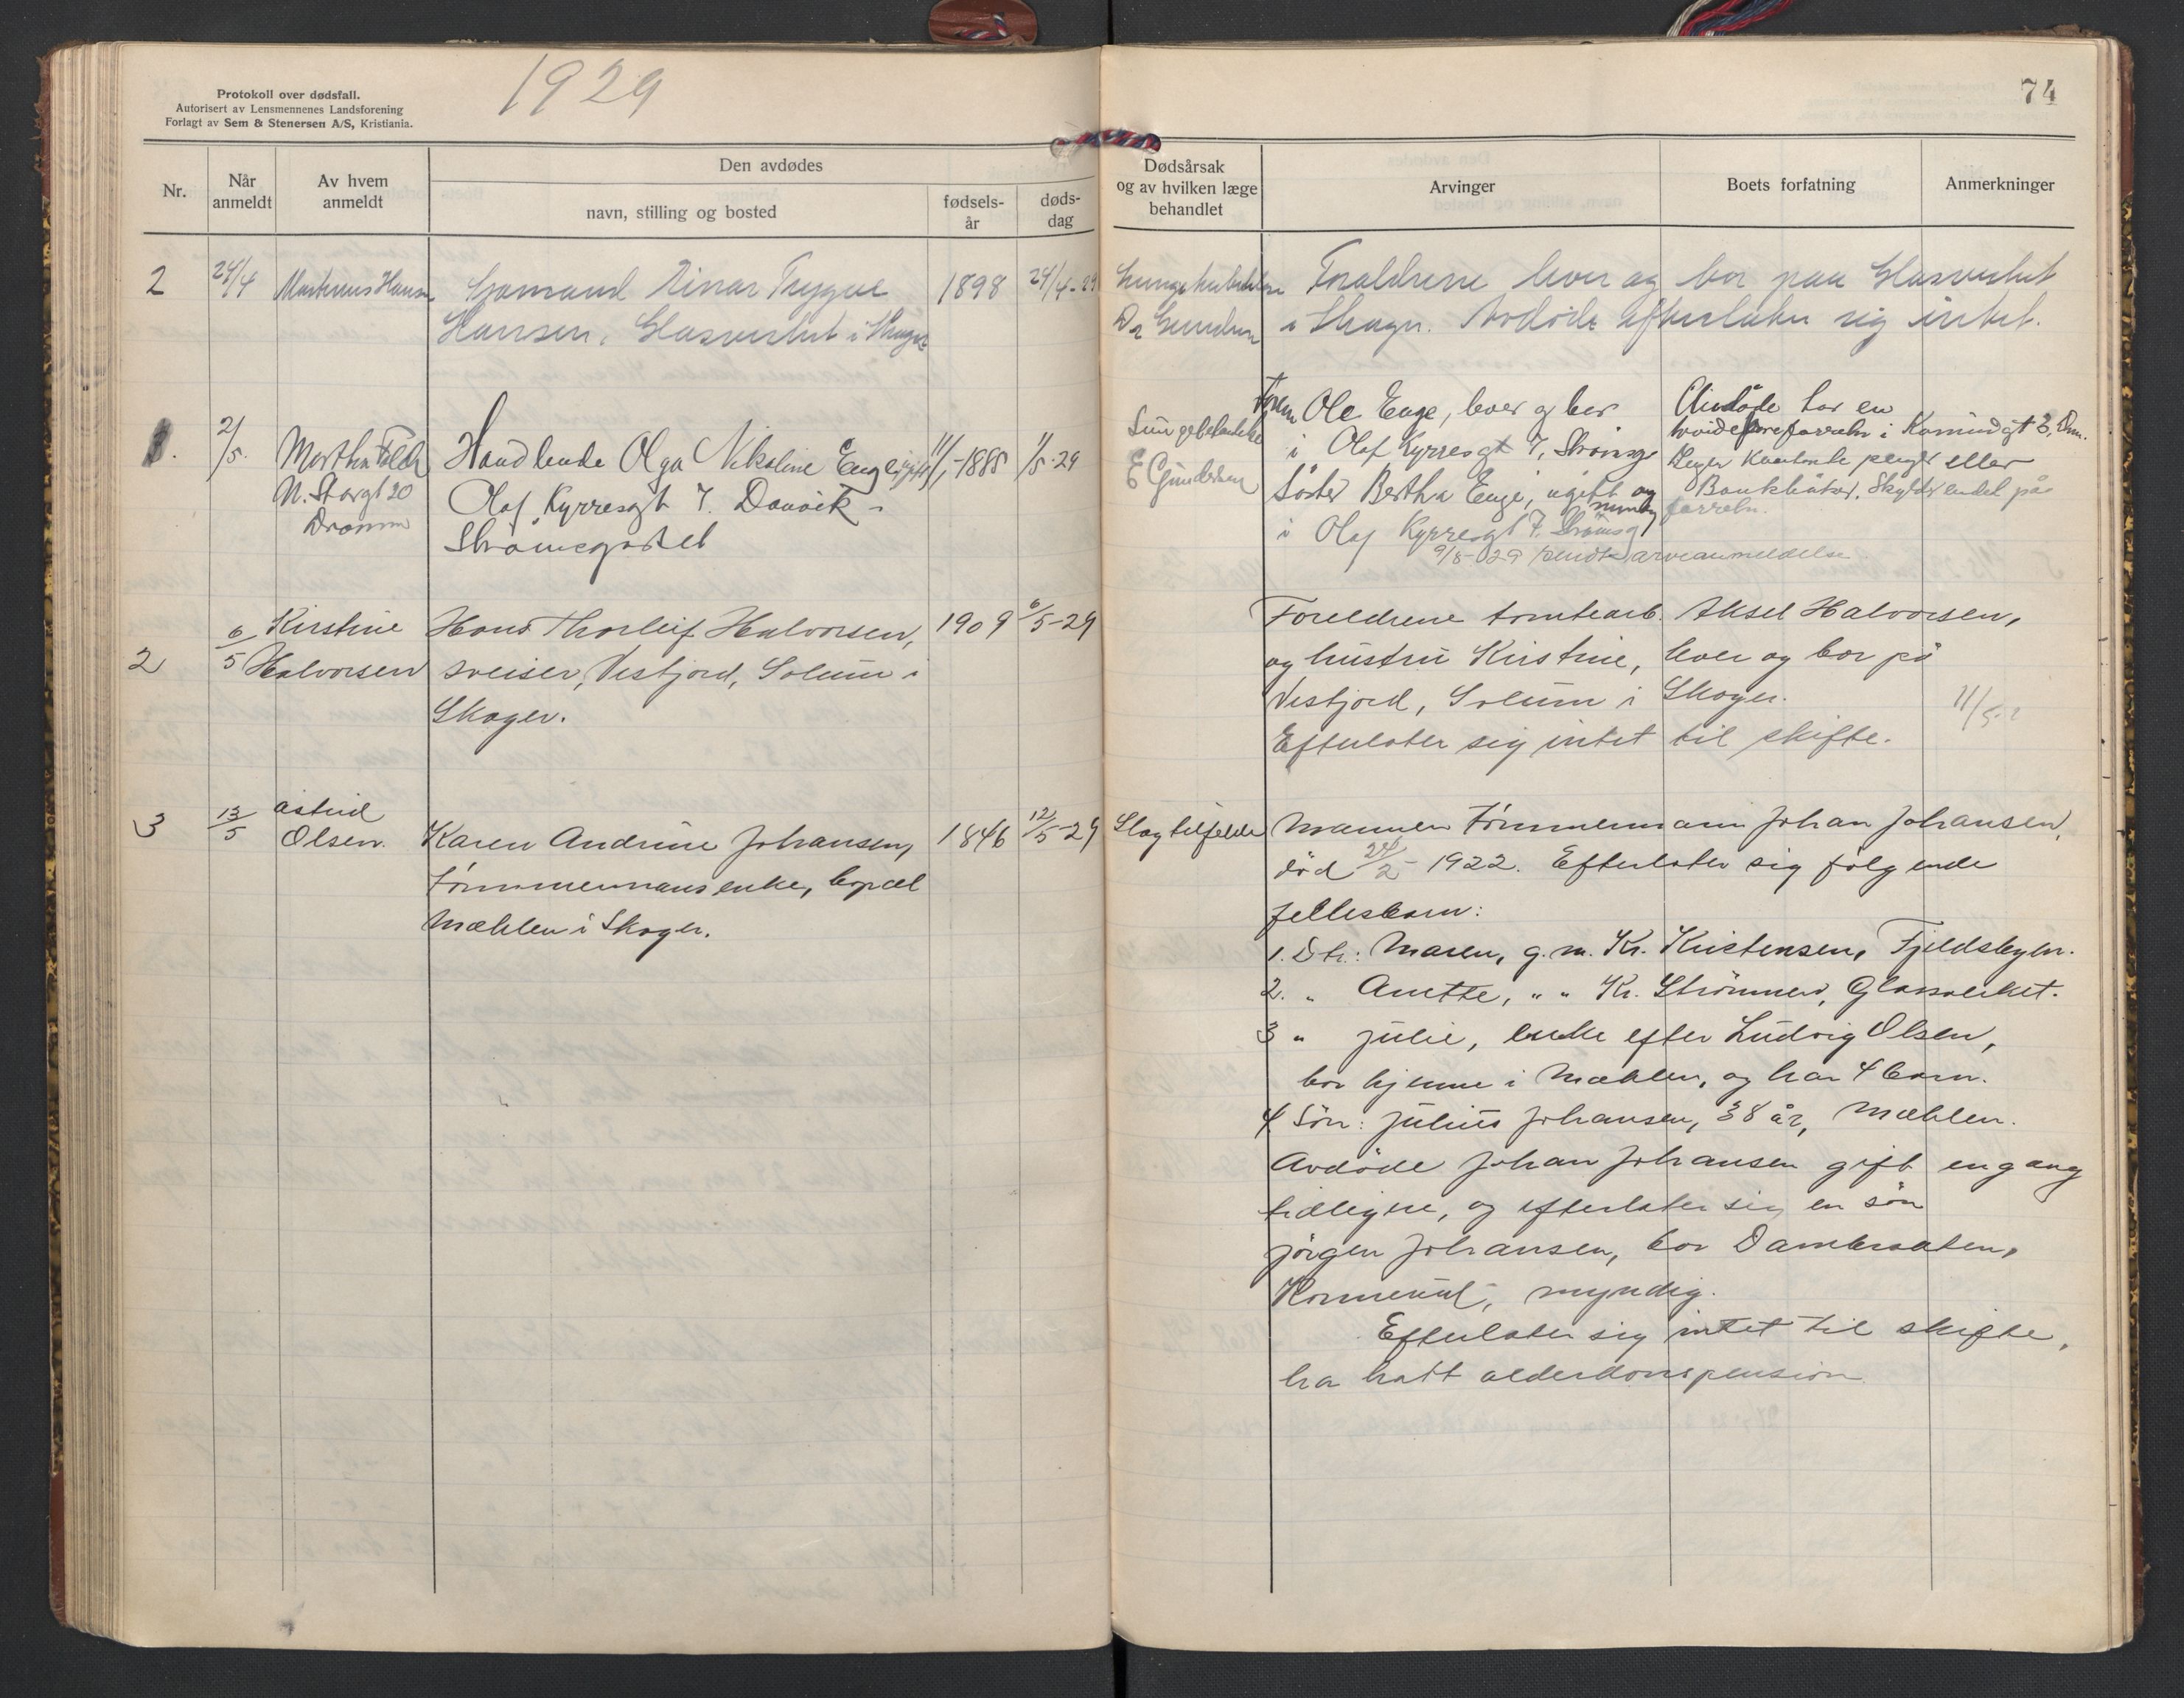 1929
74
Protokoll over dødsfall.
Autorisert av Lensmennenes Landsforening
Forlagt av Sem & Stenersen A/S, Kristiania.
Nr.
Når anmeldt
Av hvem anmeldt
Den avdødes
navn, stilling og bosted
fødselsår
dødsdag
Dødsårsak og av hvilken læge behandlet
Arvinger
Boets forfatning
Anmerkninger
2 24/4 Hansen Sjømand Einar Trygve 1898 24/4-29
Hansen, Glasverket i Skoger
Dr Gundersen
Foraldrene lever og bor paa Glasverket
i Skoger. Avdøde efterlater sig intet.
1. 2/5. Martha
N. Storgt 20
Dramm
Handlende Olga Nikoline Enge ugift 11/1-1888 1/5-29
Olaf Kyrresgt 7. Danvik -
Strømsgodset
E Gundersen
Faren Ole Enge, lever og bor
i Olaf Kyrresgt 7, Strømsg
Søster Bertha Enge, ugift og myndig
i Olaf Kyrresgt 7. Strømsg
9/8-029 sendt arveanmeldelse
Avdøde har en
forretn i Kongensgt 3, Dm.
Ingen kontante penger eller
Bankbøker. Skylder endel på
forretn.
2 6/5 Kirstine Halvorsen
Hans Thorleif Halvorsen, 1909 6/5-29
sveiser, Vestfjord, Solum i
Skoger.
Foreldrene tomtearb. Aksel Halvorsen,
og hustru Kirstine, lever og bor på
Vestfjord, Solum i Skoger.
Efterlater sig intet til skifte.
11/5-2
3 13/5 Astrid Olsen.
Karen Andrine Johansen, 1846 12/5-29
tømmermans enke, bopæl
Mæhlen i Skoger.
Slagtilfelde
Mannen Tømmermann Johan Johansen,
død 24/2-1922. Efterlater sig følgende
fellesbarn:
1. Dtr.: Maren, g.m. Kr. Kristensen, Fjeldsbyen.
2. " Anette, " " Kr. Strømmen, Glassverket.
3 " Julie, enke efter Ludvig Olsen,
bor hjemme i Mæhlen, og har 4 barn.
4 Søn: Julius Johansen, 38 år, Mæhlen.
Avdøde Johan Johansen gift engang
tidligere, og efterlater sig en søn
Jørgen Johansen, bor Dambraaten,
Konnerud, myndig.
Efterlater sig intet til skifte,
har hatt alderdomspension